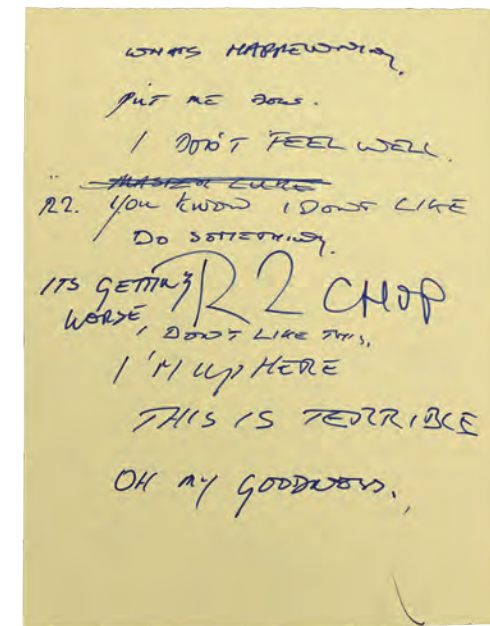 WHATS HAPPENNING,
PUT ME DOWN.
I DON'T FEEL WELL.
MASTER LUKE
R2. YOU KNOW I DONT LIKE
DO SOMETHING.
ITS GETTING
WORSE
R2 CHOP
I DON'T LIKE THIS,
I'M UP HERE
THIS IS TERRIBLE
OH MY GOODNESS.,